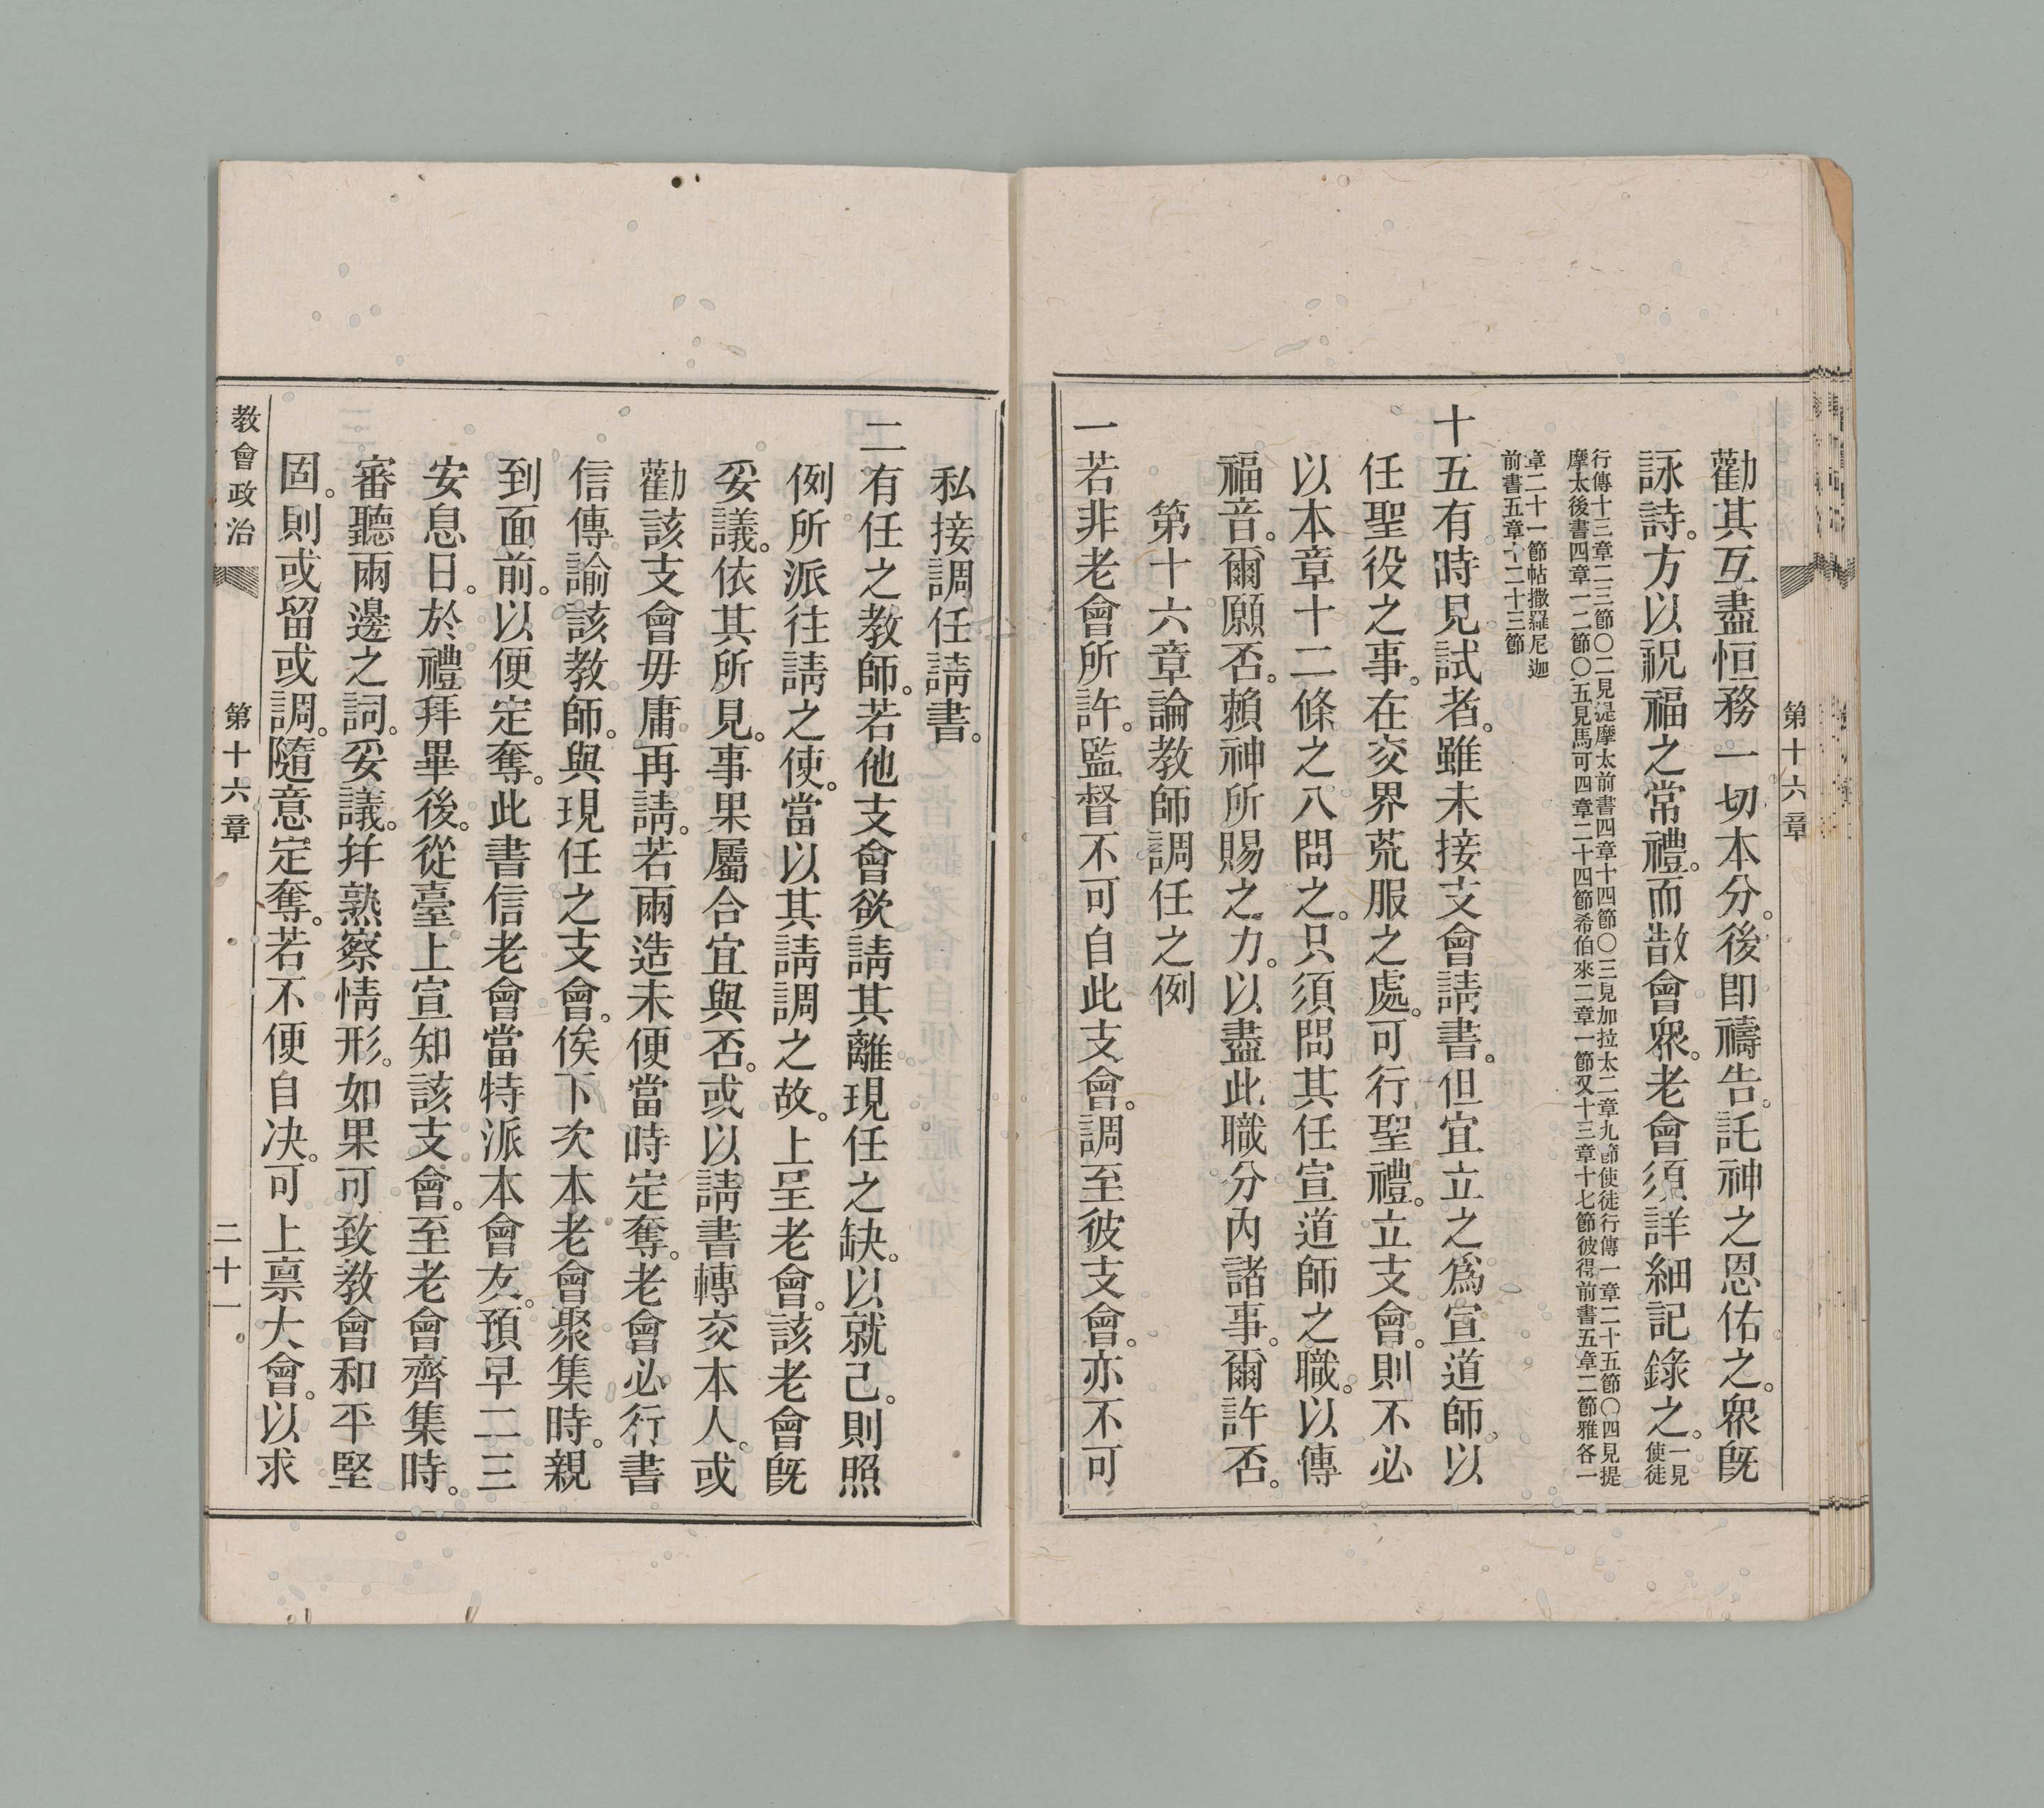 第十六章
勸其互盡恒務一切本分。後即禱告。託神之恩佑之。衆旣
詠詩。方以祝福之常禮。而散會衆。老會須詳細記錄之。一見使徒
行傳十三章二三節〇二見提摩太前書四章十四節〇三見加拉太二章九節使徒行傳一章二十五節〇四見提
摩太後書四章一二節〇五見馬可四章二十四節希伯來二章一節又十三章十七節彼得前書五章二節雅各一
章二十一節帖撒羅尼迦
前書五章十二十三節
十五有時見試者。雖未接支會請書。但宜立之爲宣道師。以
任聖役之事。在交界荒服之處。可行聖禮。立支會。則不必
以本章十二條之八問之。只須問其任宣道師之職。以傳
福音。爾願否。賴神所賜之力。以盡此職分內諸事。爾許否。
第十六章論教師調任之例
一若非老會所許。監督不可自此支會。調至彼支會。亦不可
私接調任請書。
二有任之教師。若他支會欲請其離現任之缺。以就己。則照
例所派往請之使。當以其請調之故。上呈老會。該老會旣
妥議。依其所見。事果屬合宜與否。或以請書轉交本人。或
勸該支會毋庸再請。若兩造未便當時定奪。老會必行書
信傳諭該教師。與現任之支會。俟下次本老會聚集時。親
到面前。以便定奪。此書信老會當特派本會友。預早二三
安息日。於禮拜畢後。從臺上宣知該支會。至老會齊集時。
審聽兩邊之詞。妥議。幷熟察情形。如果可致教會和平堅
固。則或留或調。隨意定奪。若不便自決。可上禀大會。以求
教會政治
第十六章
二十一